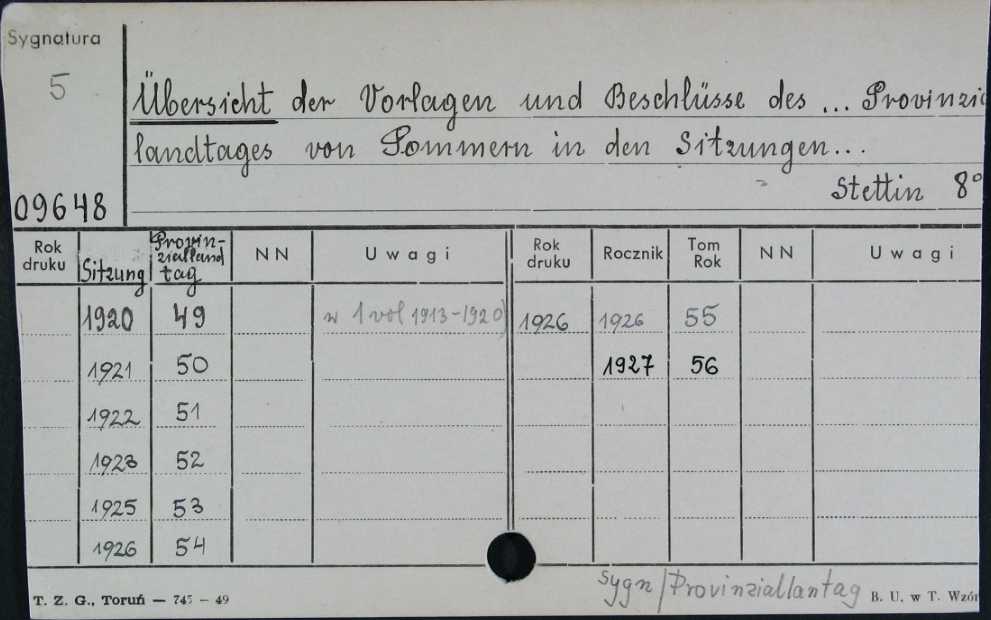 Sygnatura
5
Übersicht der Vorlagen und Beschlüsse des ... Provinzia
landtages von Pommern in den Sitzungen...
Stettin 8°
09648
Rok druku Sitzung Provin-ziallandtag NN Uwagi Rok druku Rocznik Tom Rok NN Uwagi
1920 49 w 1 vol 1913-1920) 1926 1926 55
1921 50 1927 56
1922 51
1923 52
1925 53
1926 54
sygn/Provinziallantag
T. Z. G., Toruń — 745 — 49 B. U. w T. Wzór